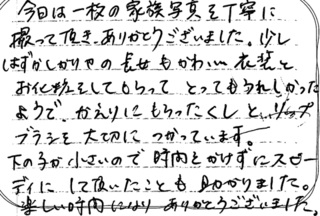 今日は一枚の家族写真を丁寧に
撮って頂き、ありがとうございました。少し
はずかしがりやの長女もかわいい衣装と
お化粧をしてもらって とってもうれしかった
ようで、かえりにもらったくしと、リップ
ブラシを大切につかっています。
下の子が小さいので時間をかけずにスピー
ディにして頂いたことも助かりました。
楽しい時間になり ありがとうございました。